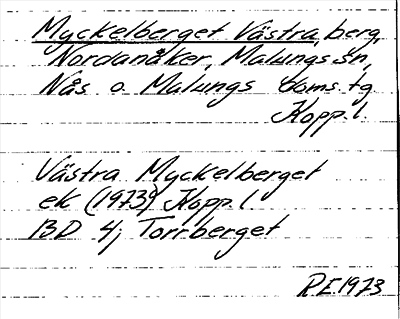 Myckelberget Västra, berg,
Nordanåker, Malungs sn,
Nås o. Malungs doms.tg
Kopp. l.
Västra Myckelberget
ek (1973) Kopp. l
BD 4j Torrberget
R.E. 1973